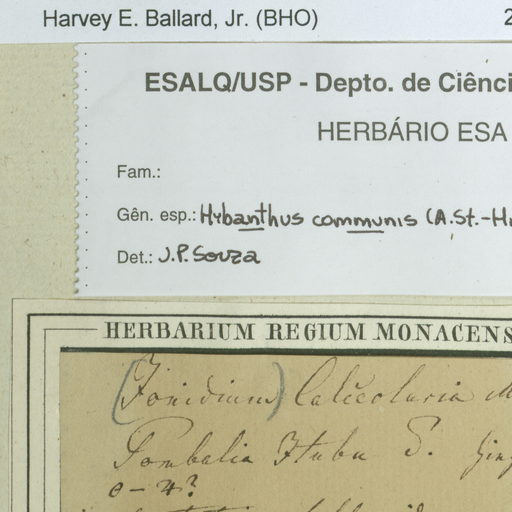 Harvey E. Ballard, Jr. (BHO) 2
ESALQ/USP - Depto. de Ciênci
HERBÁRIO ESA
Fam.:
Gên. esp.: Hybanthus communis (A.St.-Hi
Det.: J.P. Souza
HERBARIUM REGIUM MONACENS
(Jonidium) Calceolaria
Pombalia Itubu